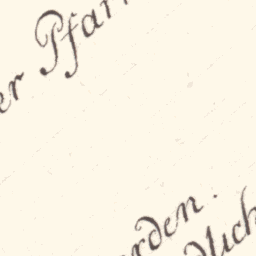 er Pfar
rden.
dlich